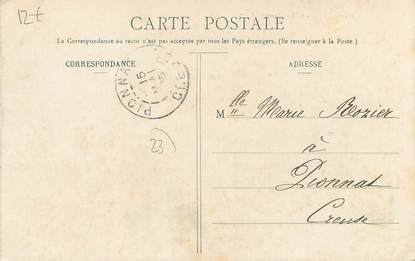 12-t
CARTE POSTALE
La Correspondance au recto n'est pas acceptée par tous les Pays étrangers. (Se renseigner à la Poste.)
CORRESPONDANCE
ADRESSE
PIONNAT
CREUSE
15
MAI
Mlle Marie Rozier
à
Pionnat
Creuse
23